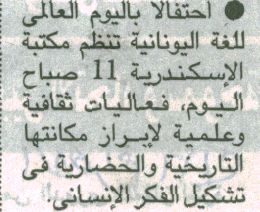 ● احتفالا باليوم العالمى
للغة اليونانية تنظم مكتبة
الإسكندرية 11 صباح
اليوم، فعاليات ثقافية
وعلمية لإبراز مكانتها
التاريخية والحضارية فى
تشكيل الفكر الإنسانى.